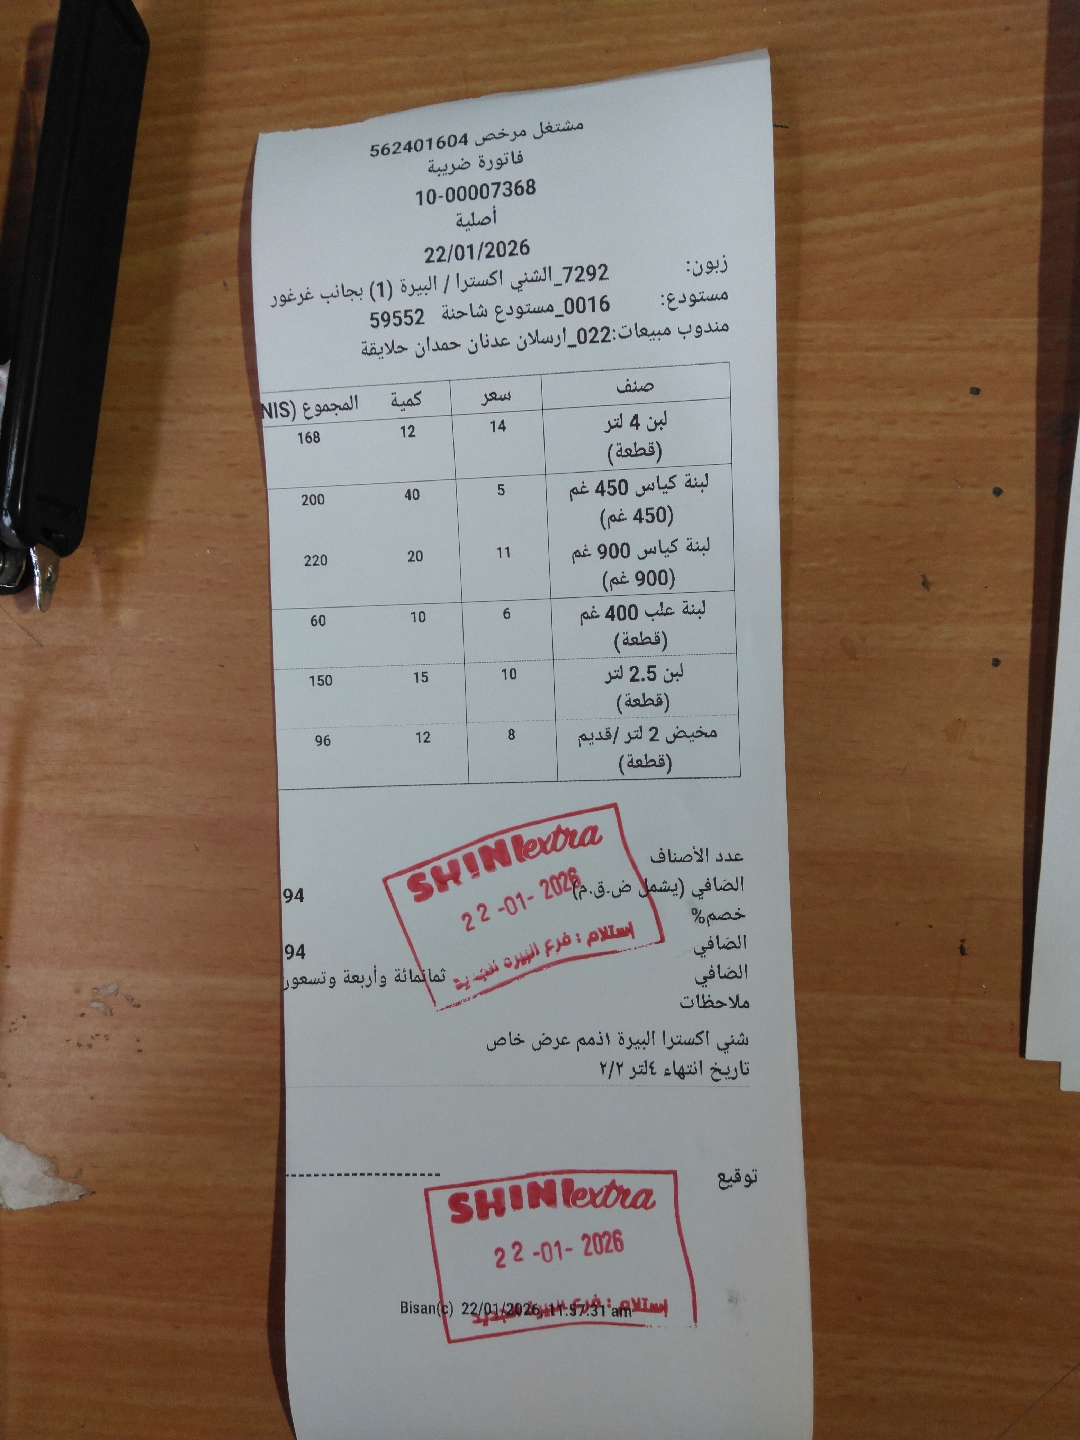 مشتغل مرخص 562401604
فاتورة ضريبة
10-00007368
أصلية
22/01/2026
زبون: 7292_الشني اكسترا / البيرة (1) بجانب غرغور
مستودع: 0016_مستودع شاحنة 59552
مندوب مبيعات:022_ارسلان عدنان حمدان حلايقة
صنف سعر كمية المجموع (NIS
لبن 4 لتر 14 12 168
(قطعة)
لبنة كياس 450 غم 5 40 200
(450 غم)
لبنة كياس 900 غم 11 20 220
(900 غم)
لبنة علب 400 غم 6 10 60
(قطعة)
لبن 2.5 لتر 10 15 150
(قطعة)
مخيض 2 لتر /قديم 8 12 96
(قطعة)
عدد الأصناف
الصافي (يشمل ض.ق.م) 94
خصم%
الصافي 94
الصافي ثمانمائة وأربعة وتسعون
ملاحظات
SHINI extra
22-01-2026
إستلام : فرع البيرة
شني اكسترا البيرة ١ذمم عرض خاص
تاريخ انتهاء ٤لتر ٢/٢
توقيع
SHINI extra
22-01-2026
إستلام : فرع البيرة
Bisan(c) 22/01/2026, 11:57:31 am